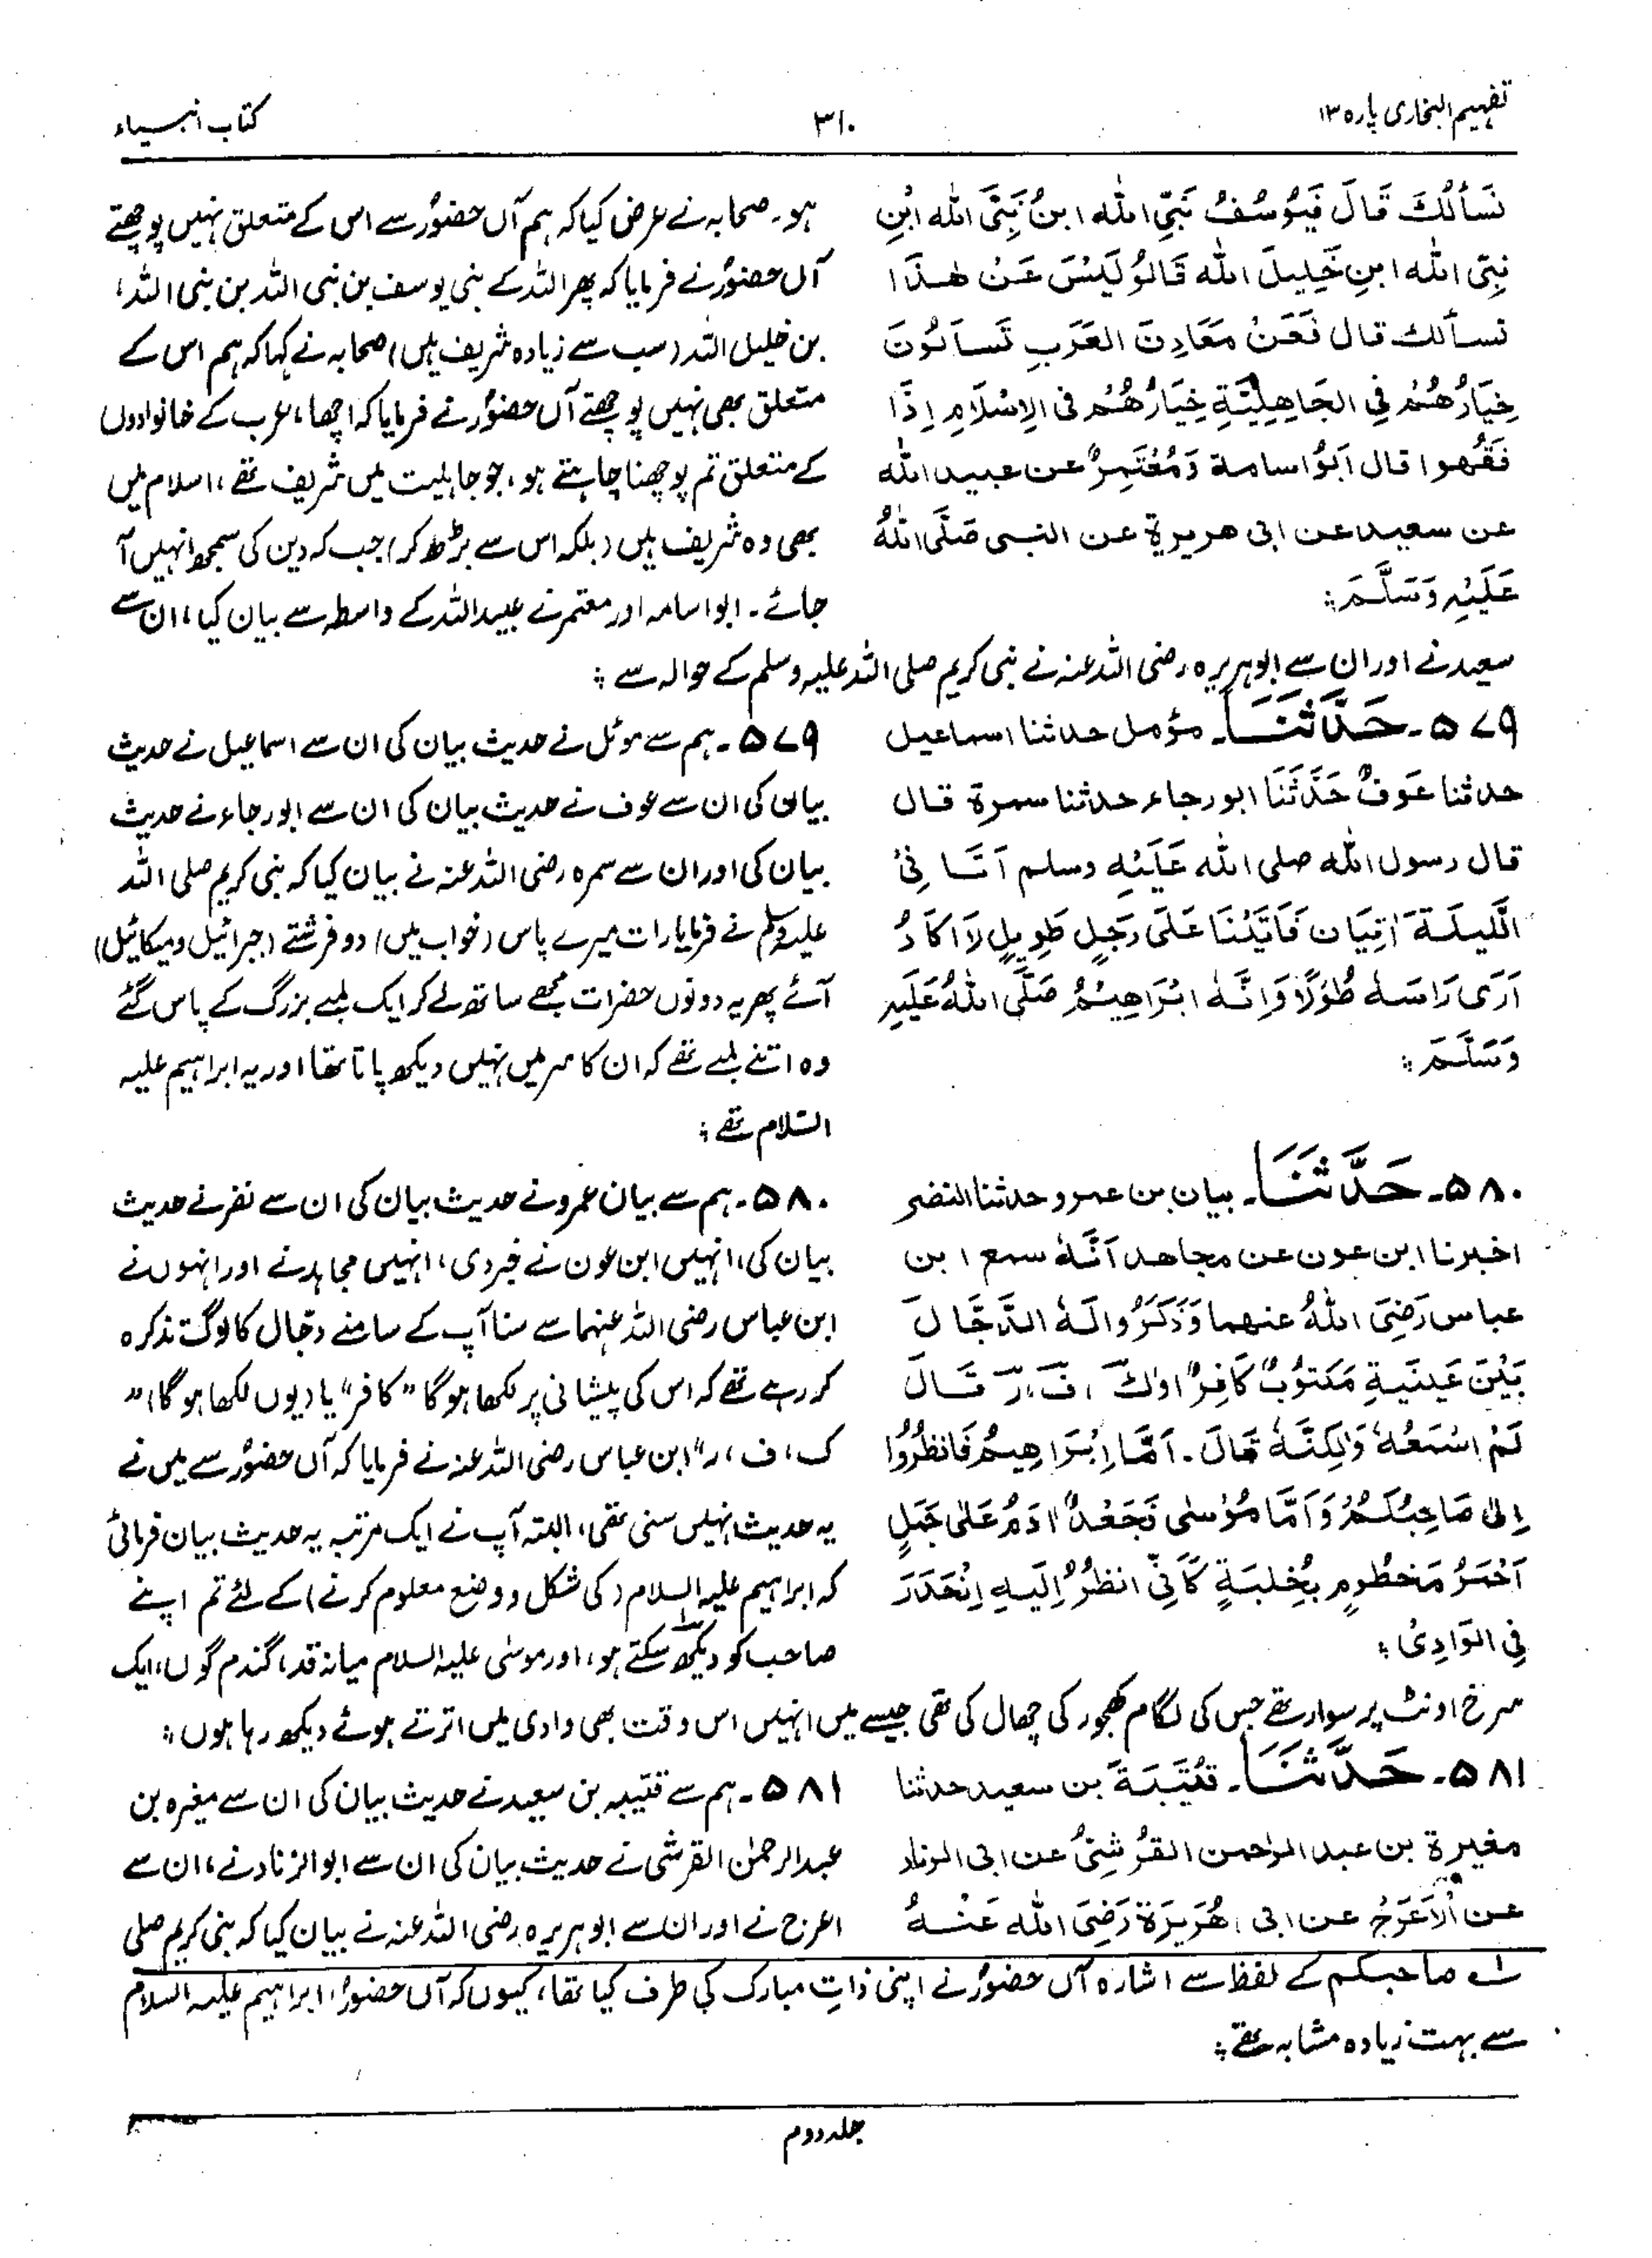 تفہیم البخاری پارہ ۱۳
۳۱۰
کتاب انبیاء
نَسَأَلُكَ قَالَ فَيُوْسُفُ نَبِّیُ اللہ ابنُ نَبِّیَ اللہ ابْنِ
نِبِّی اللہ ابنِ خَلِيلَ اللہ قَالُوْ لَيْسَ عَنْ هٰذَا
نسألك قال فَعَنْ مَعَادِنَ العَرَبِ تَسأَلُوْنَ
خِيَارُهُمْ فِی الجَاهِلِيَّةِ خِيَارُهُمْ فی الاِسْلَامِ اِذَا
فَقُهوا قال اَبُوْ اسامة وَمُعْتَمِرٌ عن عبید اللہ
عن سعید عن ابی هريرة عن النبی صَلَّی اللہُ
عَلَيْهِ وَسَلَّمَ ؛
ہو۔ صحابہ نے عرض کیا کہ ہم آں حضورؐ سے اس کے متعلق نہیں پوچھتے
آں حضورؐ نے فرمایا کہ پھر اللہ کے نبی یوسف بن نبی اللہ بن نبی اللہ،
بن خلیل اللہ (سب سے زیادہ شریف ہیں) صحابہ نے کہا کہ ہم اس کے
متعلق بھی نہیں پوچھتے آں حضورؐ نے فرمایا کہ اچھا، عرب کے خانوادوں
کے متعلق تم پوچھنا چاہتے ہو، جو جاہلیت میں شریف تھے، اسلام میں
بھی وہ شریف ہیں (بلکہ اس سے بڑھ کر) جب کہ دین کی سمجھ انہیں آ
جائے۔ ابو اسامہ اور معتمر نے عبید اللہ کے واسطہ سے بیان کیا، ان سے
سعید نے اور ان سے ابوہریرہ رضی اللہ عنہ نے نبی کریم صلی اللہ علیہ وسلم کے حوالہ سے ؛
۵۷۹۔ حَدَّثَنَا۔ مؤمل حدثنا اسماعیل
حدثنا عَوفٌ حَدَّثَنَا ابورجاء حدثنا سمرة قال
قال رسول اللہ صلی اللہ عَلَيْهِ وسلم اَتَا نِیْ
الَّليلَةَ اٰتِيَانِ فَاَتَيْنَا عَلَی رَجَلٍ طَوِيلٍ لاَ اَكَادُ
اَرَی رَاسَهٗ طُوْلًا وَاِنَّهٗ ابْرَاهِيْمُ صَلَّی اللہُ عَلَيهِ
وَسَلَّمَ ؛
۵۷۹۔ ہم سے مؤمل نے حدیث بیان کی ان سے اسماعیل نے حدیث
بیان کی ان سے عوف نے حدیث بیان کی ان سے ابورجاء نے حدیث
بیان کی اور ان سے سمرہ رضی اللہ عنہ نے بیان کیا کہ نبی کریم صلی اللہ
علیہ وسلم نے فرمایا رات میرے پاس (خواب میں) دو فرشتے (جبرائیل و میکائیل)
آئے پھر یہ دونوں حضرات مجھے ساتھ لے کر ایک لمبے بزرگ کے پاس گئے
وہ اتنے لمبے تھے کہ ان کا سر میں نہیں دیکھ پاتا تھا اور یہ ابراہیم علیہ
السّلام تھے ؛
۵۸۰۔ حَدَّثَنَا۔ بیان بن عمرو حدثنا النضر
اخبرنا ابن عون عن مجاهد اَنَّهٗ سمع ابن
عباس رَضِیَ اللہُ عنهما وَذَكَرُوا لَهٗ الدَّجَّالَ
بَيْنَ عَينَيهِ مَكتُوْبٌ كَافِرٌ اوك ، ف ، ر قَالَ
لَمْ اسْمَعْهُ وَلٰكِنَّهٗ قَالَ۔ اَمَّا اِبْرَاهِيمُ فَانظُرُوْا
اِلیٰ صَاحِبُكُمْ وَاَمَّا مُوْسٰی فَجَعْدٌ اٰدَمُ عَلٰی جَمَلٍ
اَحْمَرُ مَخطُومٍ بِخُلبَةٍ كَاَنِّی انظُرُ اِلَيهِ اِنْحَدَرَ
فِی الوَادِیْ ؛
۵۸۰۔ ہم سے بیان عمرو نے حدیث بیان کی ان سے نضر نے حدیث
بیان کی، انہیں ابن عون نے خبر دی، انہیں مجاہد نے اور انہوں نے
ابن عباس رضی اللہ عنہما سے سنا آپ کے سامنے دجّال کا لوگ تذکرہ
کر رہے تھے کہ اس کی پیشانی پر لکھا ہوگا "کافر" یا (یوں لکھا ہوگا) "
ک، ف، ر" ابن عباس رضی اللہ عنہ نے فرمایا کہ آں حضورؐ سے میں نے
یہ حدیث نہیں سنی تھی، البتہ آپ نے ایک مرتبہ یہ حدیث بیان فرمائی
کہ ابراہیم علیہ السلام (کی شکل و وضع معلوم کرنے) کے لئے تم اپنے
صاحب کو دیکھ سکتے ہو، اور موسٰی علیہ السلام میانہ قد، گندم گوں، ایک
سرخ اونٹ پر سوار تھے جس کی لگام کھجور کی چھال کی تھی جیسے میں انہیں اس وقت بھی وادی میں اترتے ہوئے دیکھ رہا ہوں ؛
۵۸۱۔ حَدَّثَنَا۔ قُتَيبَةَ بن سعید حدثنا
مغيرة بن عبد الرحمن القُرَشِیُّ عن ابی الزناد
عن الْاَعْرَجُ عن ابی هُرَيرَة رَضِیَ اللہ عَنْهُ
۵۸۱۔ ہم سے قتیبہ بن سعید نے حدیث بیان کی ان سے مغیرہ بن
عبدالرحمٰن القرشی نے حدیث بیان کی ان سے ابوالزناد نے، ان سے
اعرج نے اور ان سے ابوہریرہ رضی اللہ عنہ نے بیان کیا کہ نبی کریم صلی
لے صاحبکم کے لفظ سے اشارہ آں حضورؐ نے اپنی ذات مبارک کی طرف کیا تھا، کیوں کہ آں حضورؐ، ابراہیم علیہ السلام
سے بہت زیادہ مشابہ تھے ؛
جلد دوم